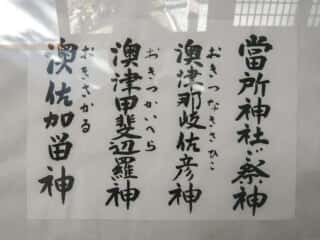 當所神社ご祭神
澳津那岐佐彦神
おきつなきさひこ
澳津甲斐辺羅神
おきつかいへら
澳佐加留神
おきさかる